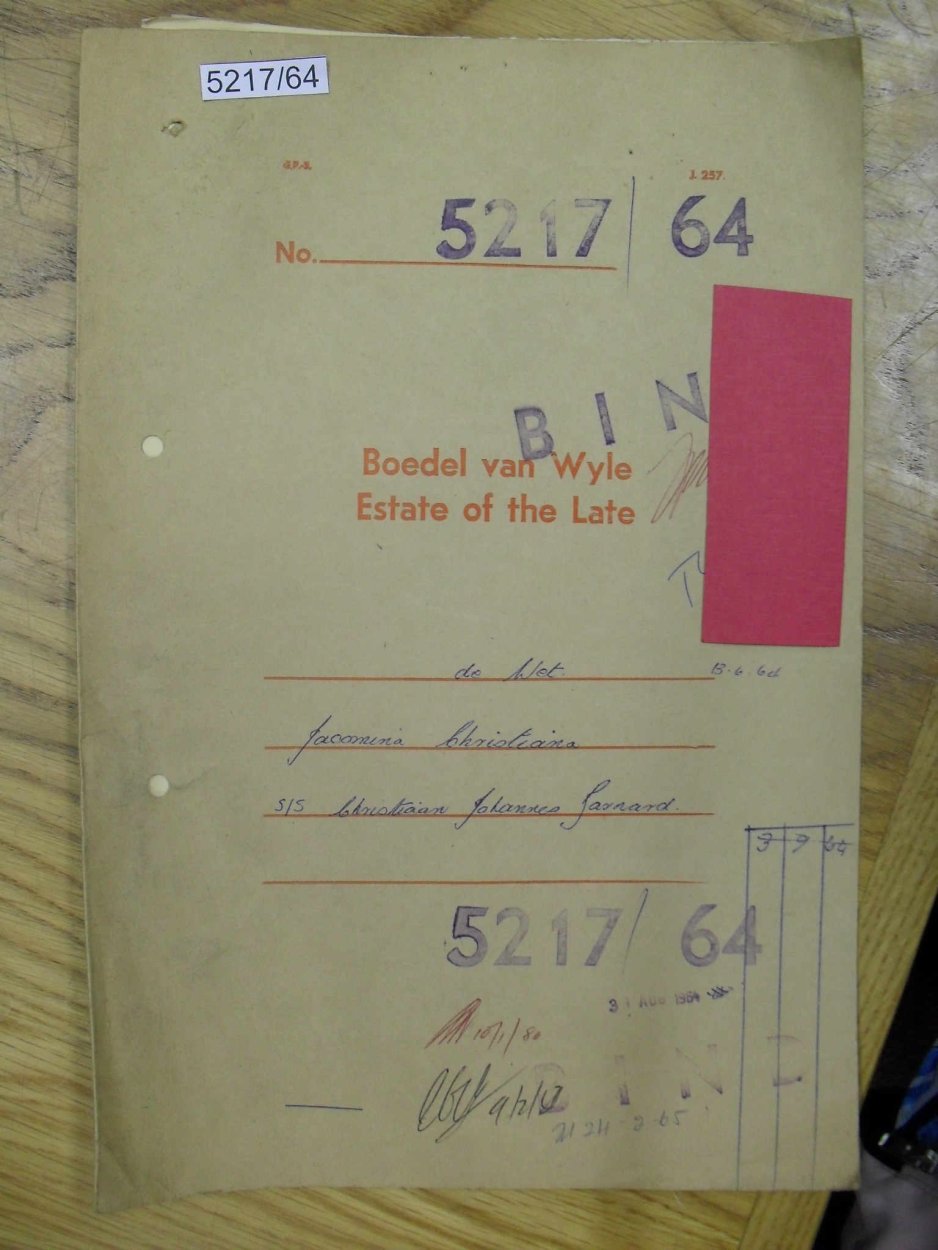 5217/64
G.P.-S.
J. 257.
No. 5217/64
BIN
Boedel van Wyle
Estate of the Late
de Wet. 13.6.64
Jacomina Christiana
S/S Christiaan Johannes Garnard.
3 9 64
5217/64
31 AUG 1964
10/1/80
BIND
24-2-65